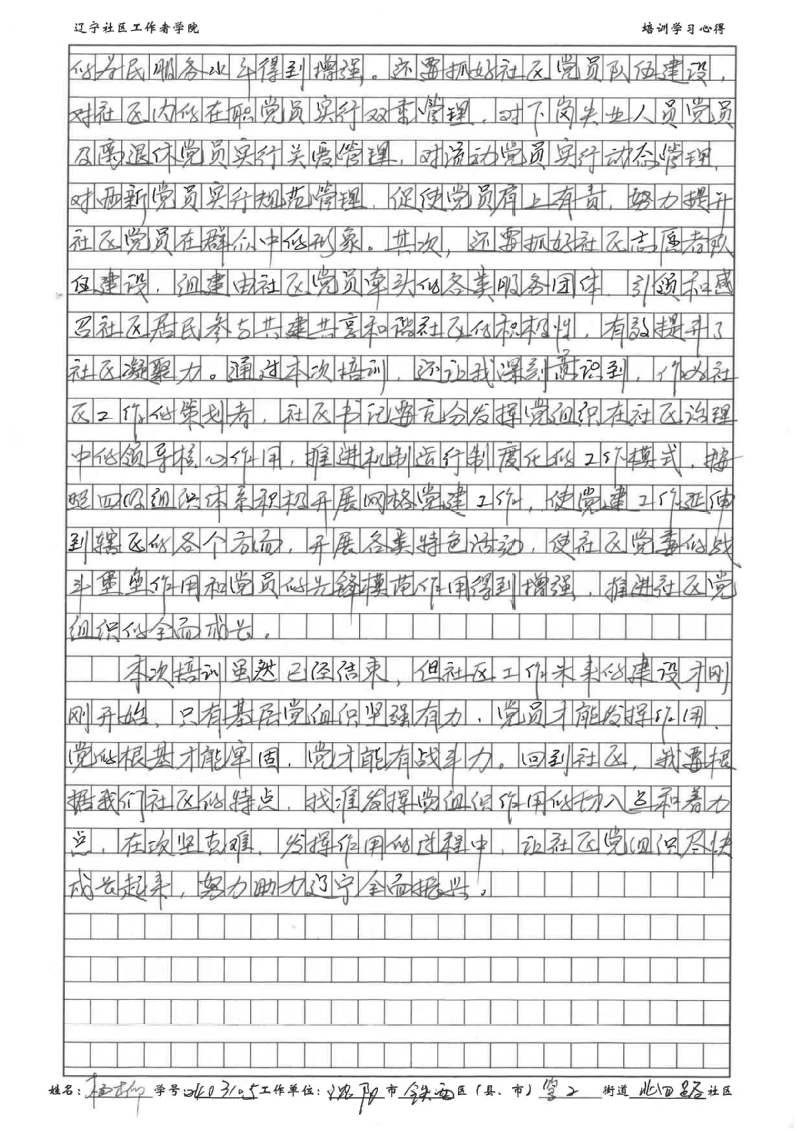 辽宁社区工作者学院 培训学习心得
的为民服务水平得到增强。还要抓好社区党员队伍建设，
对社区内的在职党员实行双重管理，对下岗失业人员党员
及离退休党员实行关爱管理，对流动党员实行动态管理，
对两新党员实行规范管理，促使党员肩上有责，努力提升
社区党员在群众中的形象。其次，还要抓好社区志愿者队
伍建设，组建由社区党员牵头的各类服务团体，引领和感
召社区居民参与共建共享和谐社区的积极性，有效提升了
社区凝聚力。通过本次培训，还让我深刻意识到，作为社
区工作的策划者，社区书记要充分发挥党组织在社区治理
中的领导核心作用，推进机制运行制度化的工作模式，按
照四级组织体系积极开展网格党建工作，使党建工作延伸
到辖区的各个方面，开展各类特色活动，使社区党委的战
斗堡垒作用和党员的先锋模范作用得到增强，推进社区党
组织的全面成长。
本次培训虽然已经结束，但社区工作未来的建设才刚
刚开始，只有基层党组织坚强有力，党员才能发挥作用，
党的根基才能牢固，党才能有战斗力。回到社区，我要根
据我们社区的特点，找准发挥党组织作用的切入点和着力
点，在攻坚克难，发挥作用的过程中，让社区党组织尽快
成长起来，努力助力辽宁全面振兴。
姓名： 学号：2403105工作单位：沈阳市铁西区（县、市）工 街道 北四路社区